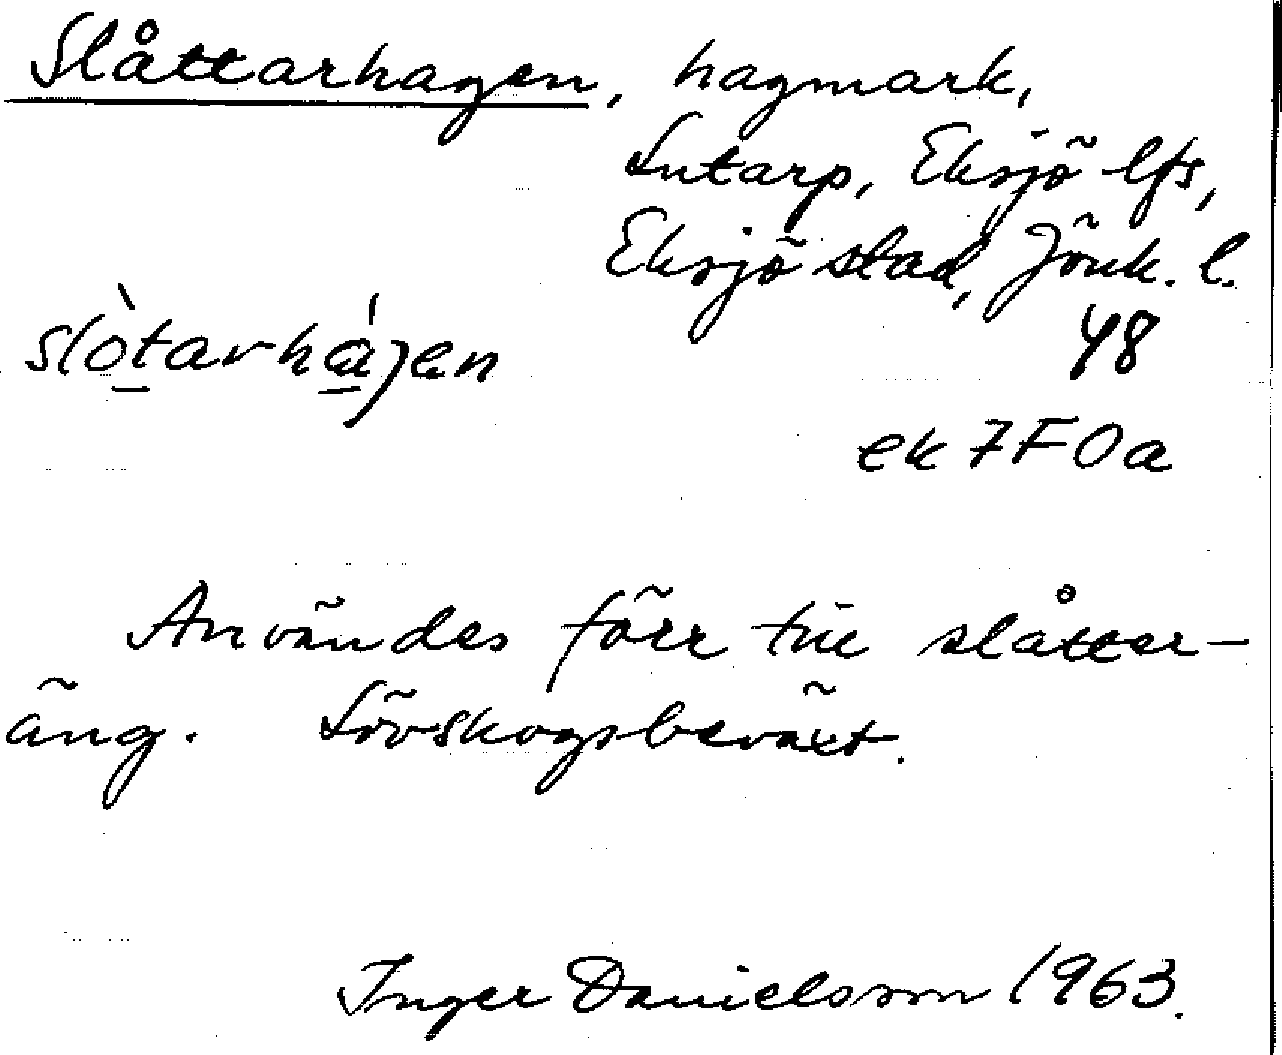 Slåttarhagen, hagmark,
Lutarp, Eksjö lfs,
Eksjö stad, Jönk. l.
48
slòtarhájen
ek 7F0a
Användes förr till slåtter-
äng. Lövskogsbeväxt.
Inger Danielsson 1963.